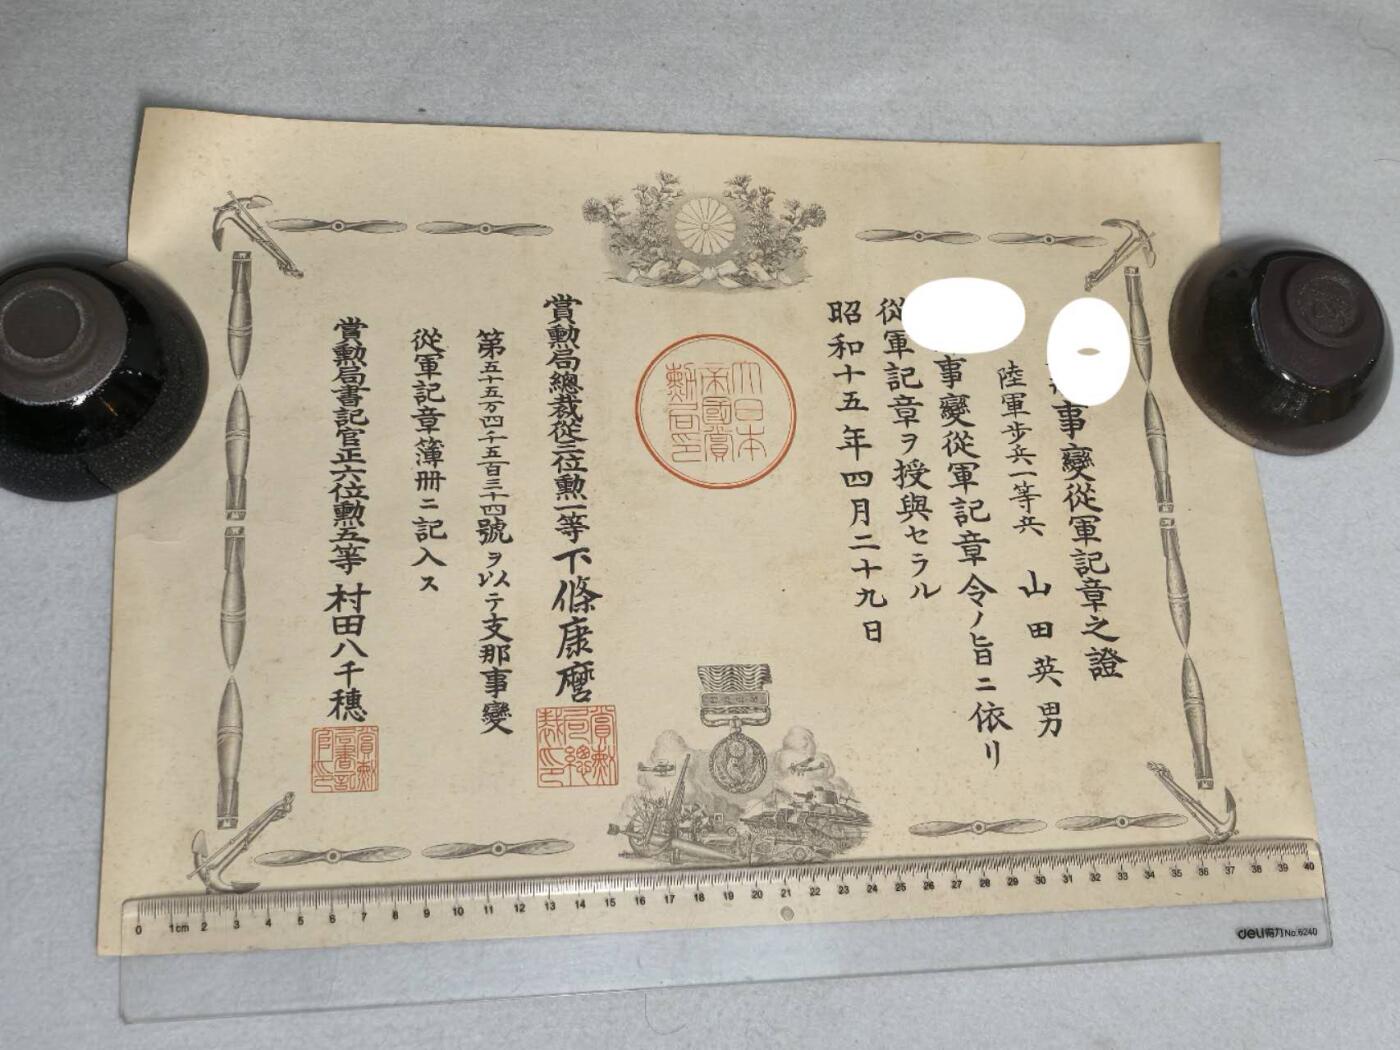 事變從軍記章之證
陸軍步兵一等兵 山田英男
事變從軍記章令ノ旨ニ依リ
從軍記章ヲ授與セラル
昭和十五年四月二十九日
大日本
帝國賞
勲局印
賞勲局總裁從三位勲一等下條康麿
賞勲
局總
裁印
第五十五万四千五百三十四號ヲ以テ支那事變
從軍記章簿冊ニ記入ス
賞勲局書記官正六位勲五等村田八千穗
賞勲
局書記
官印
0 1cm 2 3 4 5 6 7 8 9 10 11 12 13 14 15 16 17 18 19 20 21 22 23 24 25 26 27 28 29 30 31 32 33 34 35 36 37 38 39 40
deli得力 No.6240